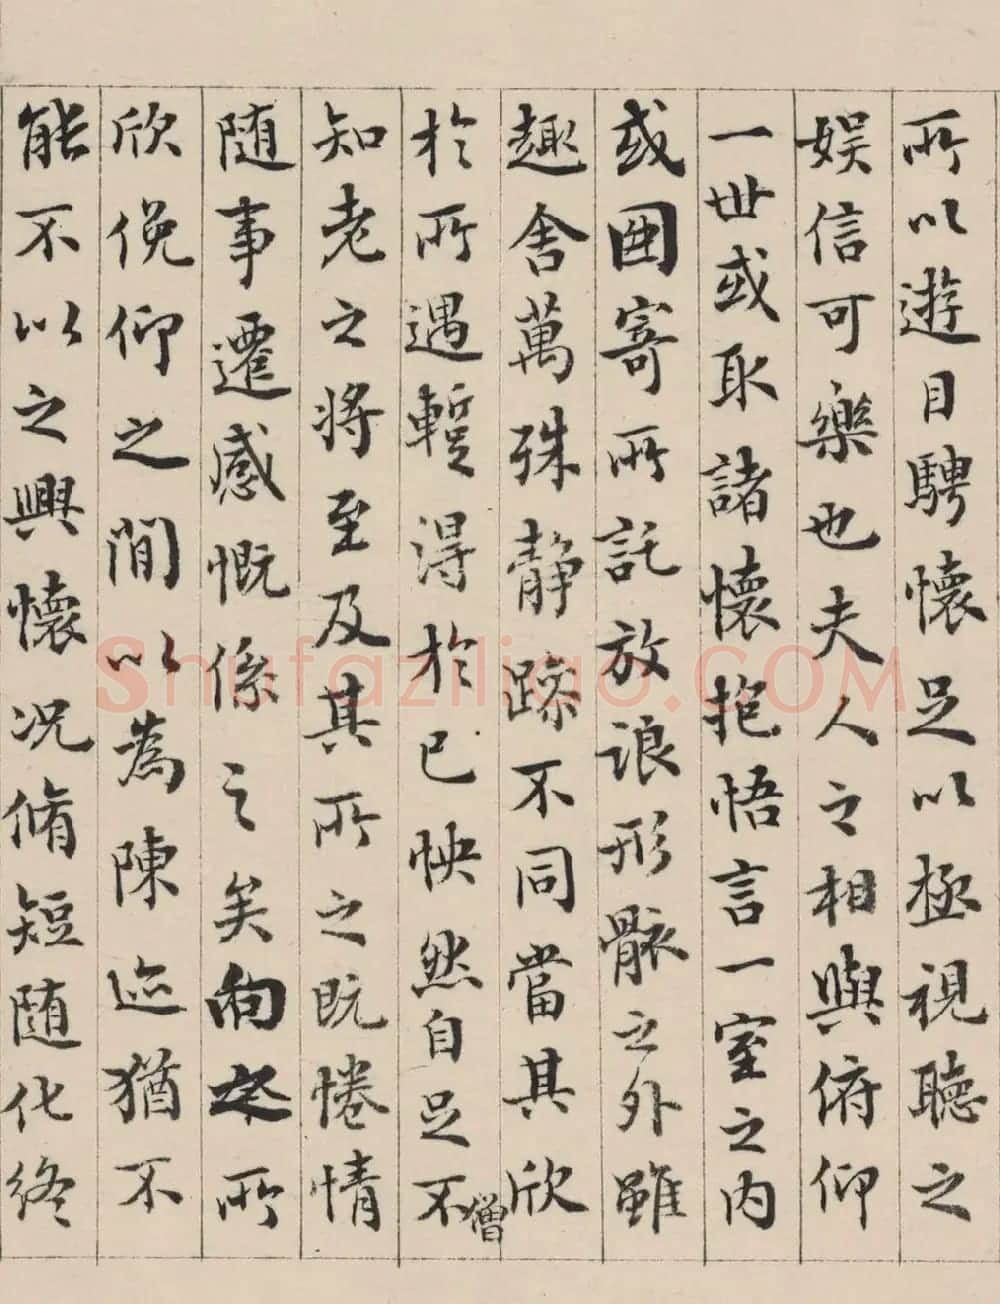 所以遊目騁懷足以極視聽之
娛信可樂也夫人之相與俯仰
一世或取諸懷抱悟言一室之內
或因寄所託放浪形骸之外雖
趣舍萬殊静躁不同當其欣
於所遇蹔得於己怏然自足不
僧
知老之將至及其所之既惓情
随事遷感慨係之矣向之所
欣俛仰之閒以為陳迹猶不
能不以之興懷况脩短随化終
Shufaziliao.COM